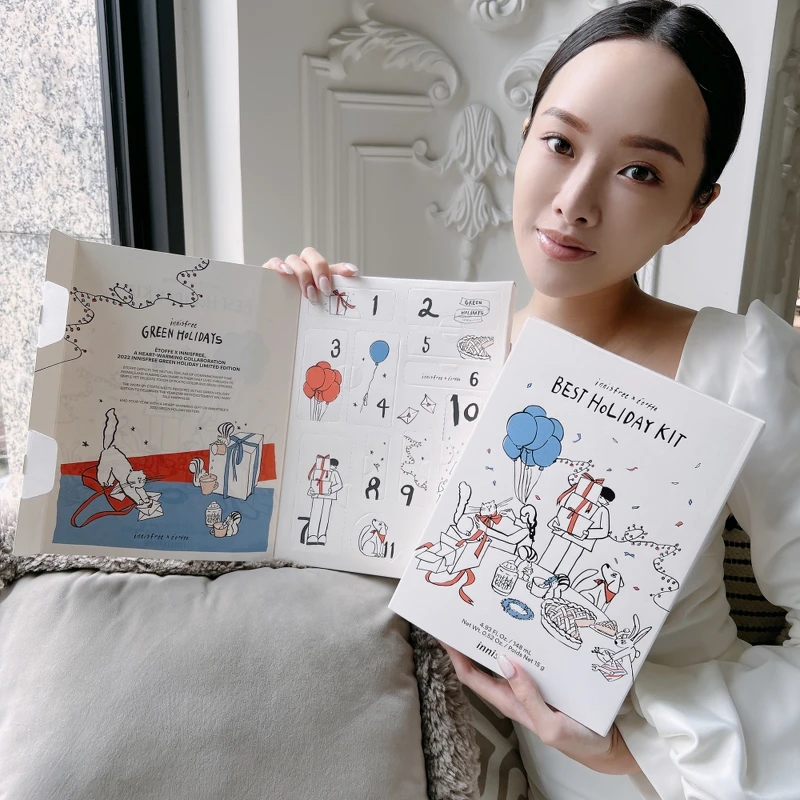 innisfree
GREEN HOLIDAYS
ÉTOFFE X INNISFREE,
A HEART-WARMING COLLABORATION
2022 INNISFREE GREEN HOLIDAY LIMITED EDITION
innisfree x étoffe
1
2
GREEN
HOLIDAYS
3
5
innisfree x étoffe
6
4
10
8
9
7
11
innisfree x étoffe
BEST HOLIDAY KIT
4.93 Fl. Oz. / 148 mL
Net Wt. 0.52 Oz. / Poids Net 15 g